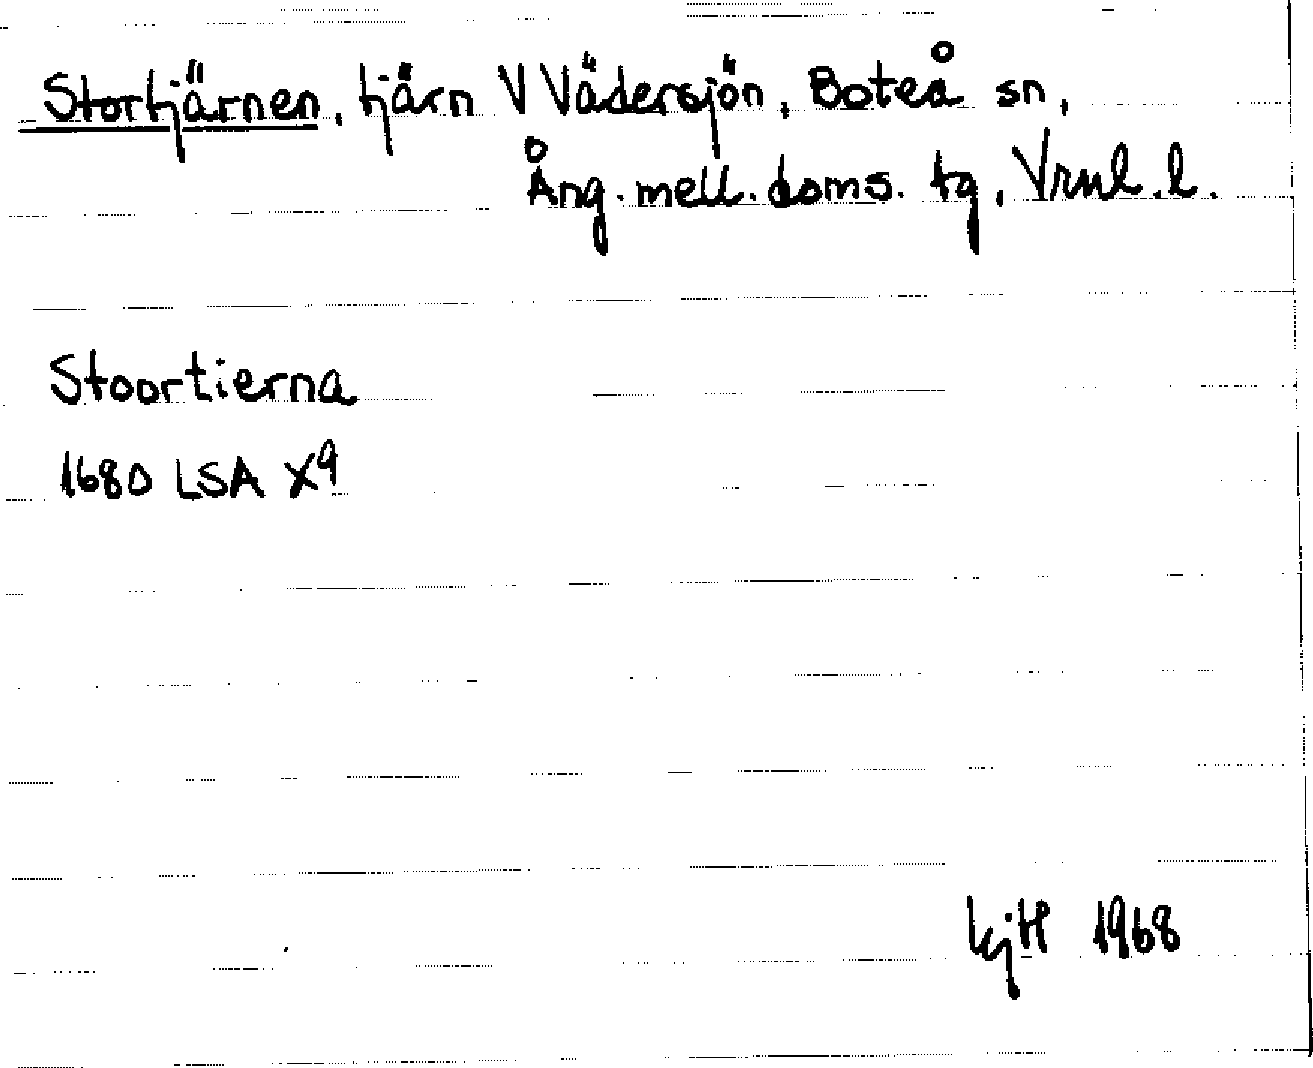 Stortjärnen, tjärn V Vädersjön, Boteå sn,
Ång. mell. doms. tg, Vrnl. l.
Stoortierna
1680 LSA X9
kjH 1968